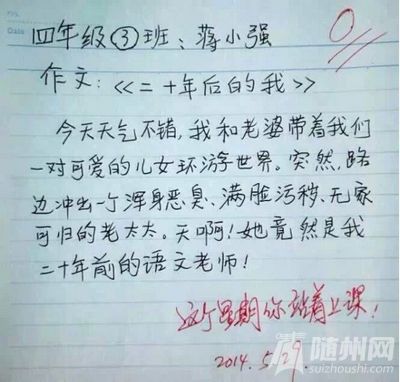 四年级③班、蒋小强
0
作文:<<二十年后的我>>
今天天气不错,我和老婆带着我们
一对可爱的儿女环游世界。突然,路
边冲出一个浑身恶臭、满脸污秽、无家
可归的老太太。天啊!她竟然是我
二十年前的语文老师!
这个星期你站着上课!
2014.5.29.
随州网
suizhoushi.com